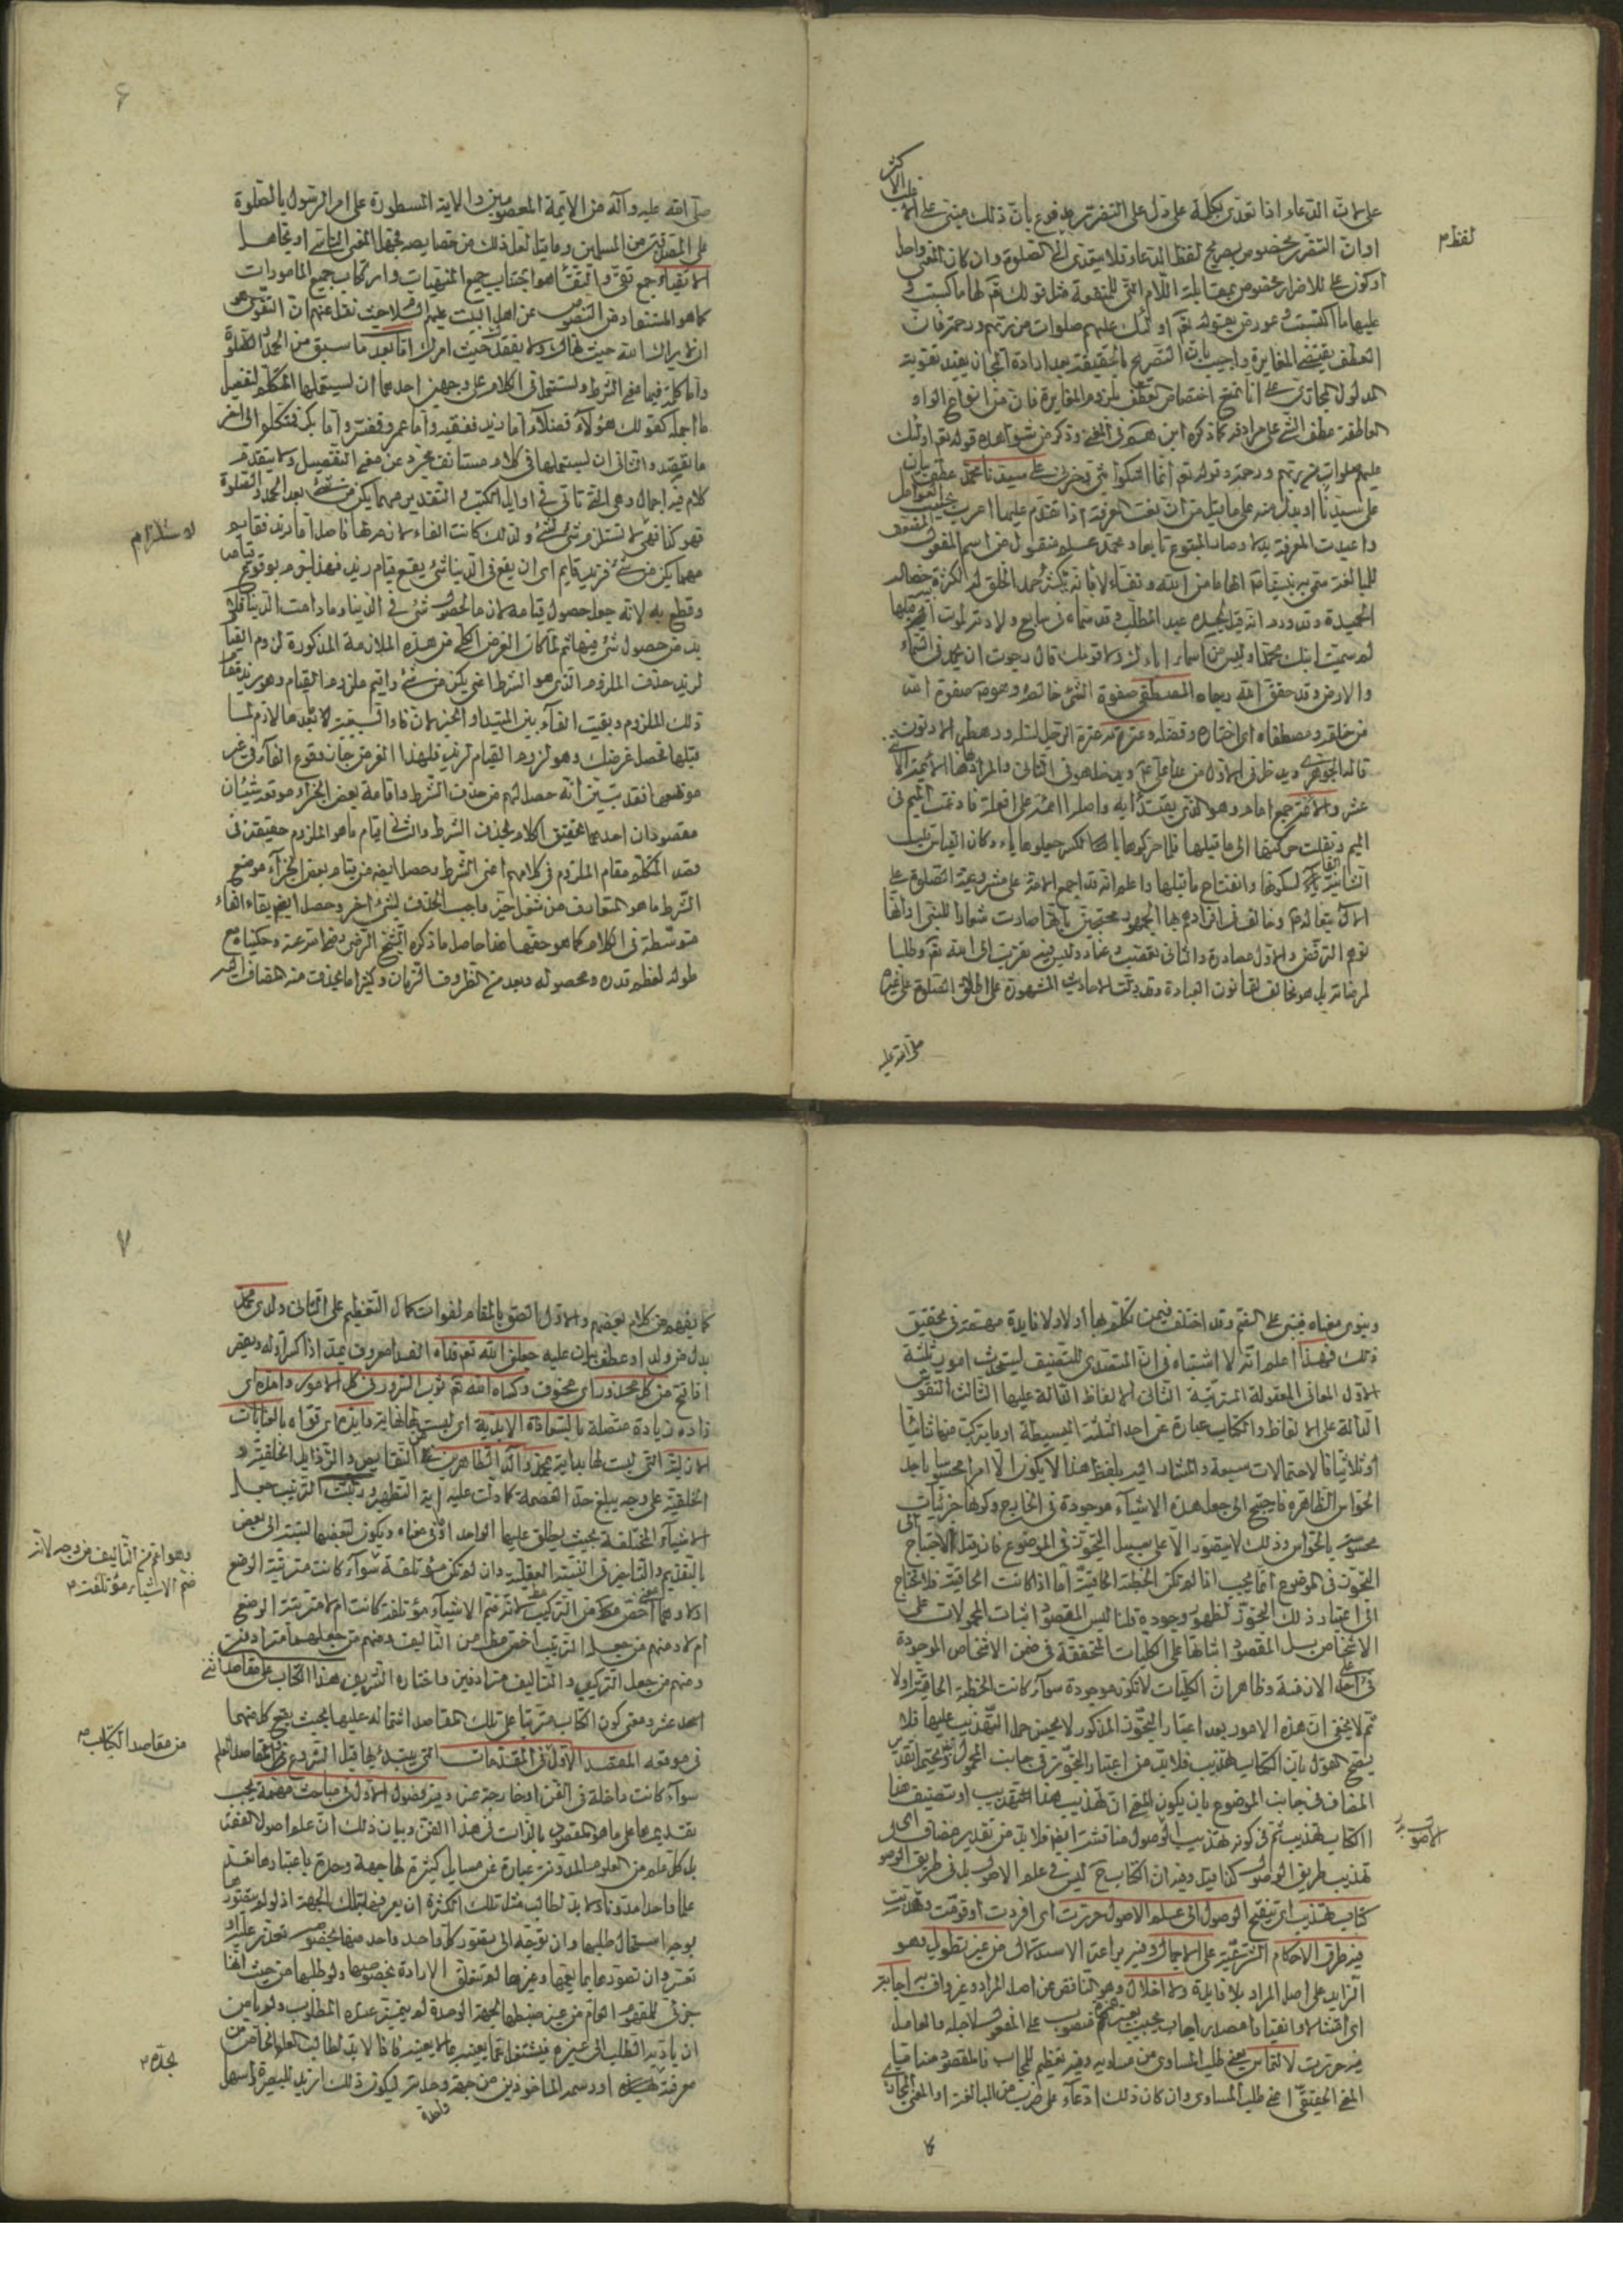 على لان الدعاء اذا تعدى بكلمة على دل على التضرر مدفوع بان ذلك مبنى على
اوان التضرر مخصوص بصريح لفظ الدعاء فلا يتعدى الى الصلوة وان كان المعنى واحدا
لفظ م
او كون على للاضرار مخصوص بمقابلة اللام التى للمنفعة مثل قولك تع لها ما كسبت و
عليها ما اكتسبت عورض بقوله تع اولئك عليهم صلوات من ربهم ورحمة فان
العطف يقتضى المغايرة واجيب بان التصريح بالحقيقة بعد ارادة المجاز يفيد تقوية
المدلول المجازى على انا نمنع اختصاص العطف بلزوم المغايرة فان من انواع الواو
العاطفة عطف الشئ على مرادفه كما ذكره ابن هشام فى المغنى وذكر من شواهده قوله تع اولئك
عليهم صلوات من ربهم ورحمة وقوله تع انما اشكوا بثى وحزنى على سيدنا محمد عطف بيان
على سيدنا او بدل منه على ما قيل من ان نعت المعرفة اذا تقدم عليها اعرب بحسب العوامل
واعيدت المعرفة بدلا وصار المتبوع تابعا ومحمد علم منقول من اسم المفعول المضعف
للمبالغة سمى به نبينا الهاما من الله وتفاءلا بانه يكثر حمد الخلق له لكثرة خصاله
الحميدة وقد ورد انه قيل لجده عبد المطلب وقد سماه فى سابع ولادته لموت ابيه قبلها
لم سميت ابنك محمدا وليس من اسماء اباءك ولا قومك قال رجوت ان يحمد فى السماء
والارض وقد حقق الله رجاه المصطفى صفوة الشئ خالصه ومحمد صفوة الله
من خلقه ومصطفاه اى اختاره وفضله وعترته عترة الرجل نسله ورهطه الادنون
قاله الجوهرى ويدخل فى الاول من عدا على ع ويدخل هو فى الثانى والمراد هنا الائمة الاثنى
عشر والائمة جمع امام وهو الذى يقتدى به واصله اءممة على افعلة فادغمت الميم فى
الميم ونقلت حركتها الى ما قبلها فلما حركوها بالكسر جعلوها ياء وكان القياس قلب
الثانية الفا لسكونها وانفتاح ما قبلها واعلم انه قد اجمع الامة على مشروعية الصلوة على
الال تبعا له ع وخالف فى افرادهم بها الجمهور محتجين بانها صارت شعارا للنبى او انها
توهم الرفض والاول مصادرة والثانى تعصب وعناد وليس فيه تقرب الى الله تع وطلبا
لمرضاته بل هو مخالف لقانون العبادة وقد دلت الاحاديث المشهورة على اطلاق الصلوة على غيره
صلى الله عليه
۶
صلى الله عليه وآله من الائمة المعصومين والاية المسطورة على امر الرسول بالصلوة
على المصدقين من المسلمين وما يقال لعل ذلك من خصايصه
الاتقياء جمع تقى والتقى هو اجتناب جميع المنهيات وارتكاب جميع المامورات
كما هو المستفاد من النصوص عن اهل البيت عليهم السلام حيث نقل عنهم ان التقوى هو
ان لا يراك الله حيث نهاك ولا يفقدك حيث امرك اما بعد ما سبق من الحمد والصلوة
واما كلمة فيها معنى الشرط وتستعمل فى الكلام على وجهين احدهما ان يستعملها المتكلم لتفصيل
ما اجمله كقولك هؤلاء فضلاء اما زيد ففقيه واما عمرو فمفسر واما بكر فمتكلم الى اخر
ما تقصد والثانى ان يستعملها فى كلام مستانف مجرد عن معنى التفصيل ولا يتقدمه
كلام فيه اجمال وهى التى تاتى فى اوايل الكتب والتقدير مهما يكن من شئ بعد الحمد والصلوة
لاستلزام
مهما يكن من شئ فزيد قايم اى ان يقع فى الدنيا شئ يقع قيام زيد فهذا جزم بوقوع قيامه
وقطع به لانه جعل حصول قيامه لازما لحصول شئ فى الدنيا وما دامت الدنيا فلا
بد من حصول شئ فيها ثم لما كان الغرض الكلى من هذه الملازمة المذكورة لزوم القيام
لزيد حذف الملزوم الذى هو الشرط اعنى يكن من شئ واقيم ملزوم القيام وهو زيد مقام
ذلك الملزوم وبقيت الفاء بين المبتدا والخبر لان فاء السببية ما بعدها لازم لما
قبلها فحصل غرضك وهو لزوم القيام لزيد فلهذا الغرض جاز وقوع الفاء فى غير
موقعها فقد تبين انه حصل لهم من حذف الشرط واقامة بعض الجزاء موقعه شيئان
مقصودان احدهما تخفيف الكلام بحذف الشرط والثانى قيام ما هو الملزوم حقيقة فى
قصد المتكلم مقام الملزوم فى كلامهم اعنى الشرط وحصل ايضا من قيام بعض الجزاء موضع
الشرط ما هو المتعارف من شغل حيز واجب الحذف بشئ اخر وحصل ايضا بقاء الفاء
متوسطة فى الكلام كما هو حقها هذا حاصل ما ذكره الشيخ الرضى وحكيناه مع
طوله لعظم قدره ومحصوله وبعد من الظروف الزمان وكثيرا ما يحذف منه المضاف اليه
وينوى معناه فيبنى على الضم وقد اختلف فيمن تكلم بها اولا ولا فايدة مهمة فى تحقيق
ذلك فهذا اعلم انه لا اشتباه فى ان المتصدى للتصنيف يستحدث امورا ثلثة
الاول المعانى المعقولة المترتبة الثانى الالفاظ الدالة عليها الثالث النقوش
الدالة على الالفاظ والكتاب عبارة عن احد الثلثة البسيطة او ما يتركب منها ثنائيا
او ثلاثيا فالاحتمالات سبعة والمشار اليه بلفظ هذا لا يكون الا امرا محسوسا باحد
الحواس الظاهرة فاحتيج الى جعل هذه الاشياء موجودة فى الخارج وكونها جزئيات
محسوسة بالحواس وذلك لا يتصور الا على سبيل التجوز فى الموضوع فان قيل الاحتياج الى
التجوز فى الموضوع انما يجب اذا لم تكن الخطبة الحاقية اما اذا كانت الحاقية فلا تحتاج
الى اعتبار ذلك التجوز لظهور وجوده قلنا ليس المقصود اثبات المحمولات على
الاشخاص بل المقصود اثباتها على الكليات المتحققة فى ضمن الاشخاص الموجودة
وظاهر ان الكليات لا تكون موجودة سواء كانت الخطبة الحاقية او لا
ثم لا يخفى ان هذه الامور بعد اعتبار التجوز المذكور لا يحسن حمل التهذيب عليها فلا
يصح القول بان الكتاب تهذيب فلابد من اعتبار التجوز فى جانب المحمول
المضاف فى جانب الموضوع بان يكون المعنى ان تهذيب هذا التهذيب او تصنيف هذا
الكتاب تهذيب ثم فى كونه تهذيب الوصول مناقشة ايضا فلابد من تقدير مضاف اى
تهذيب طريق الوصول كذا قيل وفيه ان الكتاب ح ليس فى علم الاصول بل فى طريق الوصو
كتاب تهذيب اى تنقيح الوصول الى علم الاصول حررت اى افردت او قومت وهذبت
فيه طرق الاحكام الشرعية على الاجمال وفيه براعة الاستهلال من غير تطويل وهو
الزايد على اصل المراد بلا فايدة ولا اخلال وهو الناقص عن اصل المراد وغير واف به اجابة
اى امتثالا وانقيادا مصدر اجاب يجيب منصوب على المفعول لاجله والعامل
فيه حررت لالتماس بمعنى طلب المساوى من مساويه وفيه تعظيم للمجاب فالمقصود هنا
المعنى الحقيقى اعنى طلب المساوى وان كان ذلك ادعاء على ضرب من المبالغة او المعنى المجازى
كا
۷
كما يفهم من كلام بعضهم والاول الصق بالمقام لفوات كمال التعظيم على الثانى ولدى محمد
بدل من ولد او عطف بيان عليه جعلنى الله تع فداه الفداء معروف يمد اذا كسر اوله ويقصر
اذا فتح من كل محذور اى مخوف وكساه الله تع ثوب السرور فى كل الامور وامده اى
زاده زيادة متصلة بالسعادة الابدية اى ليست لها نهاية
الازلية التى ليست لها بداية بمحمد وآله الطاهرين عن النقايص والرذايل الخلقية و
الخلقية على وجه يبلغ حد العصمة كما دلت عليه اية التطهير ورتبت الترتيب جعل
الاشياء المختلفة بحيث يطلق عليها الواحد اى فى معناه ويكون لبعضها نسبة الى بعض
وهو اعم من التاليف من وجه لانه
ضم الاشياء مؤتلفة م
بالتقديم والتاخير فى النسبة العقلية وان لم تكن مؤتلفة سواء كانت مترتبة الوضع
او لا وهما اخص مطلقا من التركيب لانه ضم الاشياء مؤتلفة كانت ام لا مترتبة الوضع
ام لا ومنهم من جعل الترتيب اخص مطلقا من التاليف ومنهم من جعلهما مترادفين
ومنهم من جعل التركيب والتاليف مترادفين واختاره الشريف هذا الكتاب على مقاصد اثنى
احد عشر ومعنى كون الكتاب مترتبا على تلك المقاصد اشتماله عليها بحيث يقع كل منهما
من مقاصد الكتاب م
فى موقعه المقصد الاول فى المقدمات التى يبتدئ بها قبل الشروع فى مقاصد العلم
سواء كانت داخلة فى الفن او خارجة عنه وفيه فصول الاول فى مباحث مهمة يجب
تقديمها على ما هو المقصود بالذات فى هذا الفن وبيان ذلك ان علم اصول الفقه
بل كل علم من العلوم المدونة عبارة عن مسايل كثيرة لها جهة وحدة باعتبارها تعد
علما واحدا مدونا ولابد لطالب مثل تلك الكثرة ان يعرفها بتلك الجهة اذ لو لم يتصور
بوجه استحال طلبها وان توجه الى تصور كل واحد واحد منها بخصوصه تعذر عليه او
تعسر وان تصورها بما يعمها وغيرها لم تتعلق الارادة بخصوصها ولو طلبها من حيث انها
جزئى للمفهوم العام من غير ضبطها بجهة الوحدة لم يتميز عنده المطلوب ولم يامن
ان يؤديه الطلب الى غيره فيشتغل بما يعنيه عما لا يعنيه فاذا لابد لطالب العلم الخاص من
بحده م
معرفة او رسمه الماخوذين من جهة وحدته ليكون ذلك ازيد للبصيرة واسهل